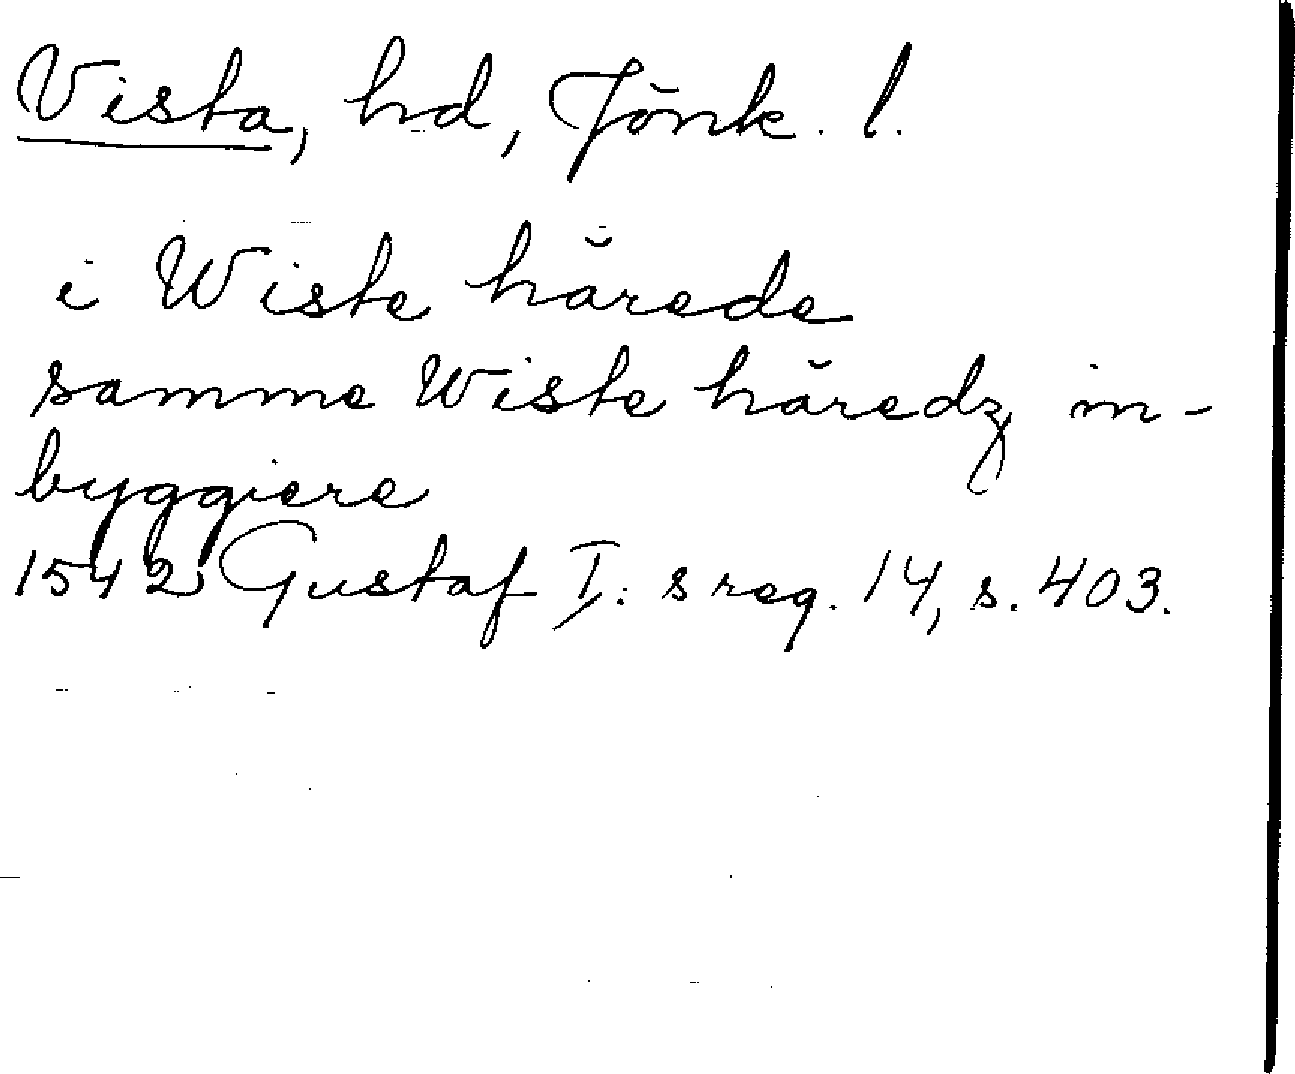 Vista, hd, Jönk. l.
i Wiste härede
samme Wiste häredz in-
byggiere
1542 Gustaf I:s reg. 14, s. 403.